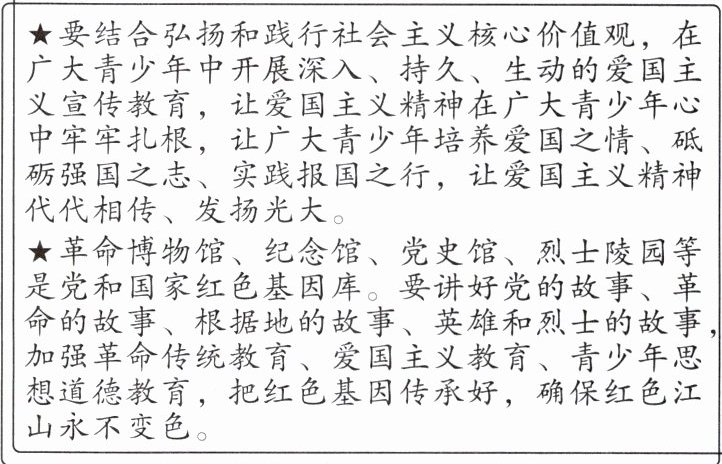 ★要结合弘扬和践行社会主义核心价值观，在
广大青少年中开展深入、持久、生动的爱国主
义宣传教育，让爱国主义精神在广大青少年心
中牢牢扎根，让广大青少年培养爱国之情、砥
砺强国之志、实践报国之行，让爱国主义精神
代代相传、发扬光大。
★革命博物馆、纪念馆、党史馆、烈士陵园等
是党和国家红色基因库。要讲好党的故事、革
命的故事、根据地的故事、英雄和烈士的故事，
加强革命传统教育、爱国主义教育、青少年思
想道德教育，把红色基因传承好，确保红色江
山永不变色。